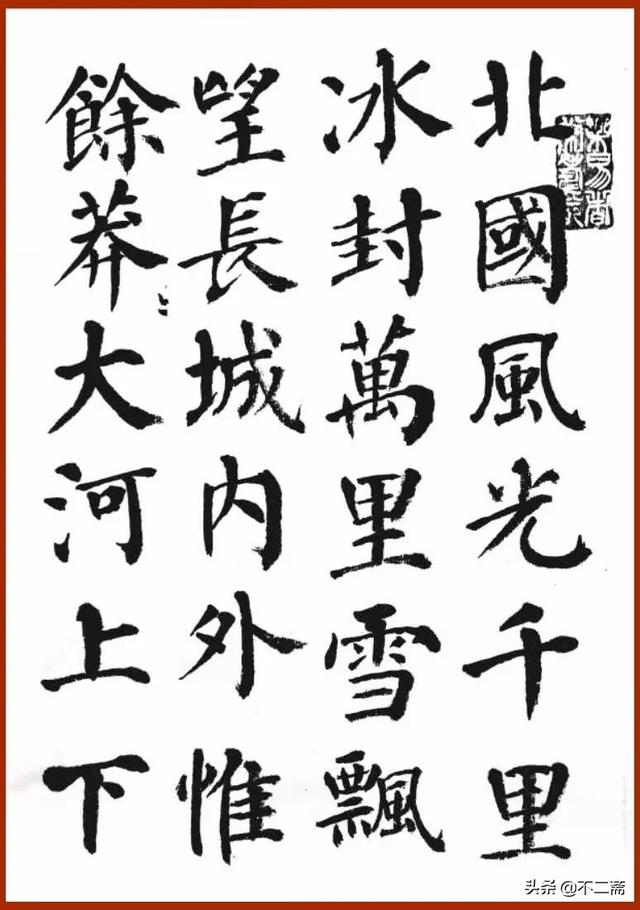 北國風光千里
冰封萬里雪飄
望長城內外惟
餘莽〻大河上下
头条 @不二斋